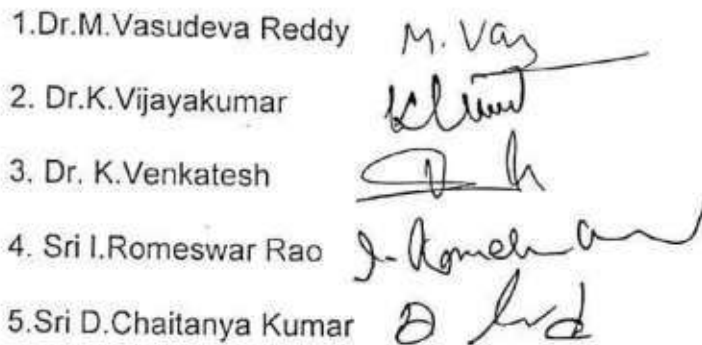 1.Dr.M.Vasudeva Reddy M. Vas
2. Dr.K.Vijayakumar
3. Dr. K.Venkatesh
4. Sri I.Romeswar Rao
5.Sri D.Chaitanya Kumar